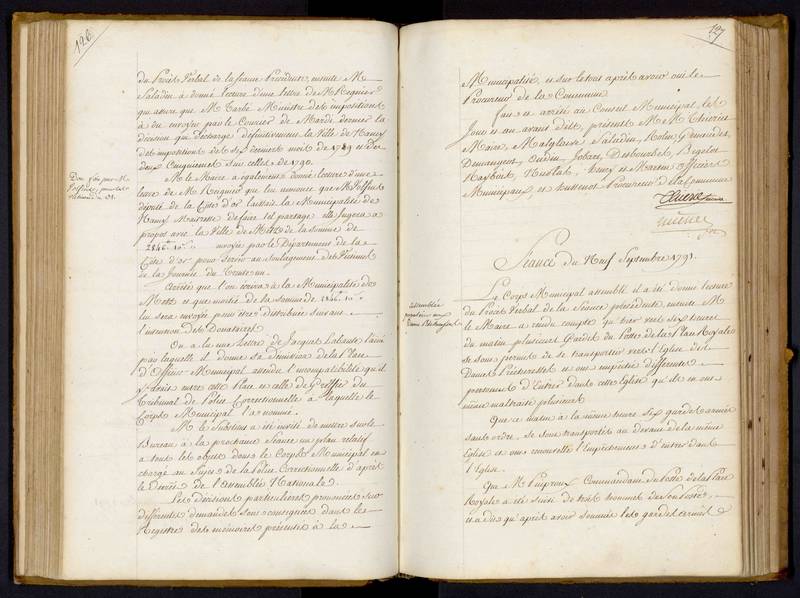 126
du Procès Verbal de la séance Précédente, ensuite M
Saladin a donné lecture d'une lettre de M. Regnier
qui assure que M. Tarbé Ministre des impositions
a dû envoyer par le Courier de Mardi dernier la
décision qui décharge définitivement la Ville de Nancy
des impositions des six derniers mois de 1789 et des
deux Cinquiemes sur celles de 1790.
M. le Maire a également donné lecture d'une
lettre de M. Regnier qui lui annonce que M. Volfius
député de la Côte d'or laissoit la Municipalité de
Nancy Maitresse de faire tel partage qu'elle jugera a
propos avec la Ville de Metz de la somme de
2846.lt 10.s envoyée par le Département de la
Côte d'or pour servir au Soulagement des Victimes
de la Journée du trente un.
Arrêté que l'on écrira à la Municipalité de
Metz et que moitié de la somme de 2846. 10.s
lui sera envoyée pour être distribuée suivant
l'intention des Donateurs
On a lu une lettre de Jacques Lalance l'ainé
par laquelle il donne sa démission de la Place
d'Officier Municipal attendu l'incompatibilité qu'il
y a entre cette Place et celle de Greffier du
Tribunal de Police Correctionnelle à laquelle le
Corps Municipal l'a nommé.
M. le Substitut a été invité de mettre sur le
Bureau à la prochaine Séance un plan relatif
a tous les objets dont le Corps Municipal est
chargé au Sujet de la Police Correctionnelle d'après
le Décret de l'assemblée Nationale.
Les décisions particulieres prononcées sur
differentes demandes sont consignées dans le
Registre des mémoires présentés à la
Don fait par M.
Volfius, pour les
Victimes du 31.
127
Municipalité, et sur le tout après avoir oui le
Procureur de la Commune
Fait et arrêté au Conseil Municipal, les
Jour et an avant dits, présents M. M. Thieriet
Maire, Malglaive, Saladin, Rolin,
Demangeot, Oudin, Jobart, Desbourbes, Bigelot
et Martin officiers
Municipaux, et Procureur de la Commune
Séance du Neuf Septembre 1791.
Le Corps Municipal assemblé il a été donné lecture
du Procès Verbal de la Séance précédente, ensuite M.
le Maire a rendu compte qu'hier vers six heures
du matin plusieurs Gardes du Poste de la Place Royale
se sont permis de se transporter vers l'Eglise des
Dames Prêcheresses et ont empêché differentes
personnes d'Entrer dans cette Eglise qu'ils en ont
même maltraité plusieurs
Que ce matin à la même heure six gardes armés
sans ordre, se sont transportés au devant de la même
Eglise et ont renouvellé l'Empêchement d'entrer dans
l'Eglise.
Que M. Commandant du Poste de la Place
Royale a été Suivi de trois hommes de Son Poste,
et a dit qu'après avoir sommé les gardes armés
assemblée
populaire aux
Dames Prêcheresses